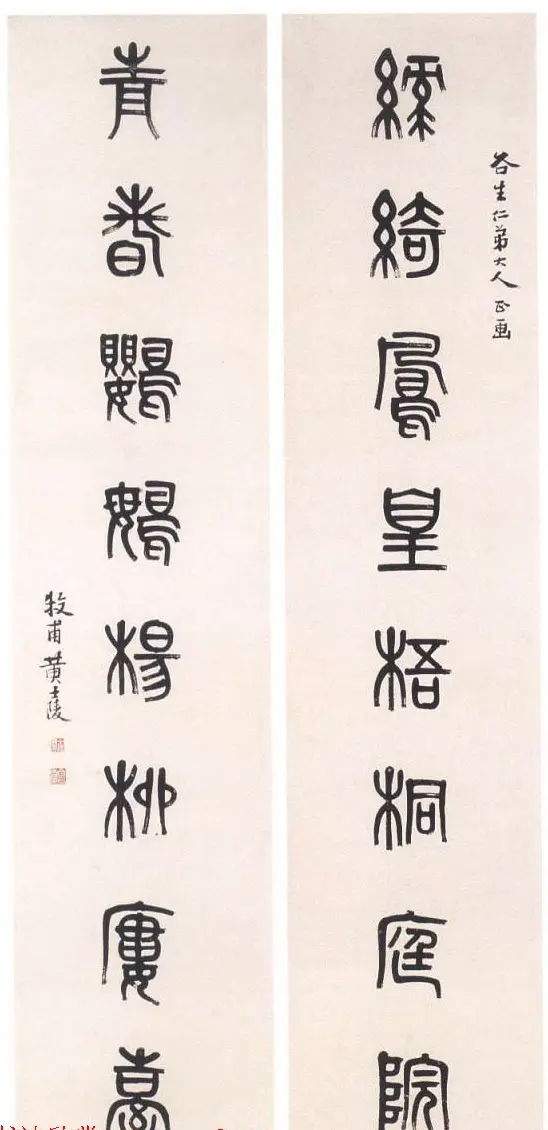 谷生仁弟大人正画
綠綺鳳皇梧桐庭院
青春鸚䳇楊柳廔臺
牧甫黄士陵